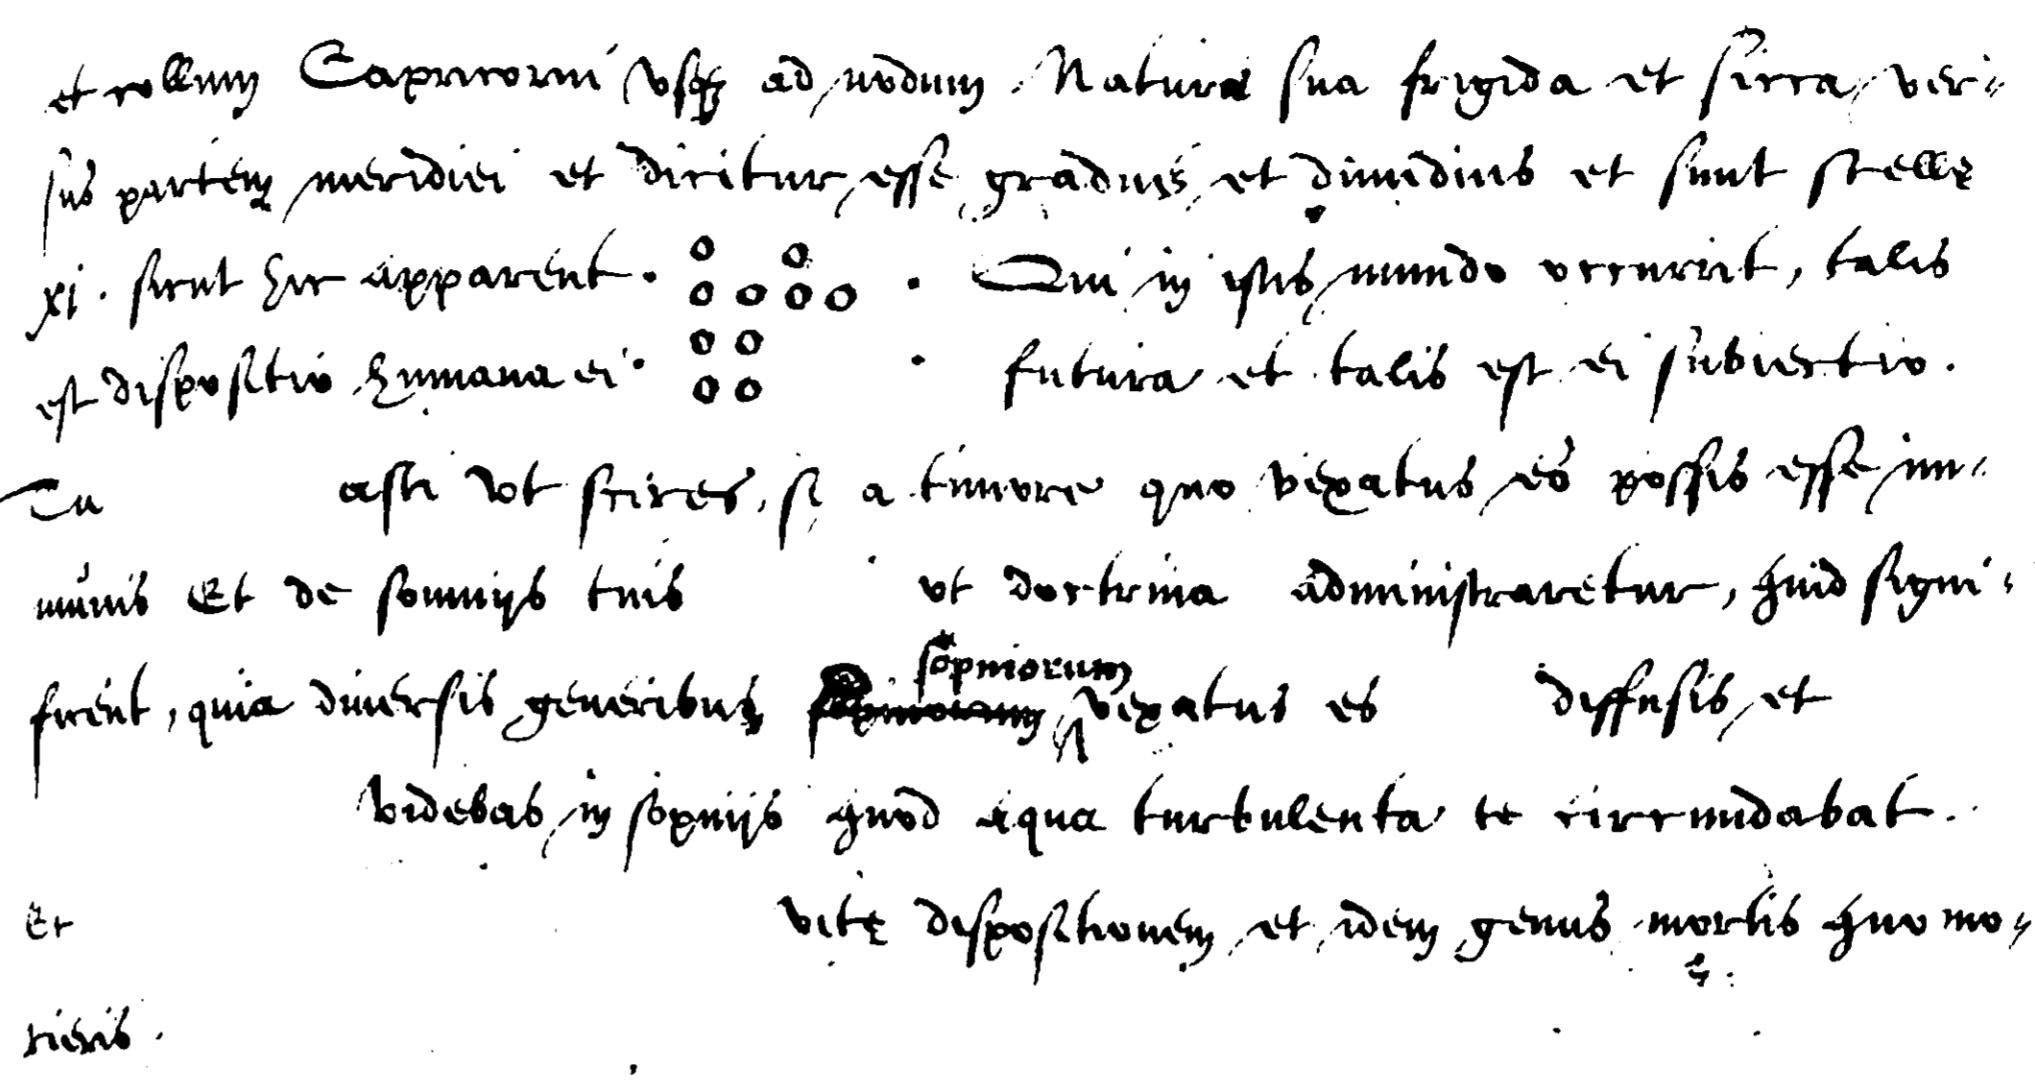 et collum Capricorni vsqꝫ ad nodum. Natura sua frigida et sicca, ver-
sus partem meridiei et dicitur esse gradus et dimidius et sunt stellę
xj. sicut hic apparent. Qui in istis mundo occurrit, talis
est dispositio humana ei. futura et talis est ei subiectio.
Tu asti vt scires, si a timore quo vexatus es possis esse im-
munis Et de somnijs tuis vt doctrina administraretur, quid signi-
ficent, quia diuersis generibus sopniorum vexatus es diffusis et
videbas in sopnijs quod aqua turbulenta te circumdabat.
Et vitę dispositionem et idem genus mortis quo mo-
rieris.